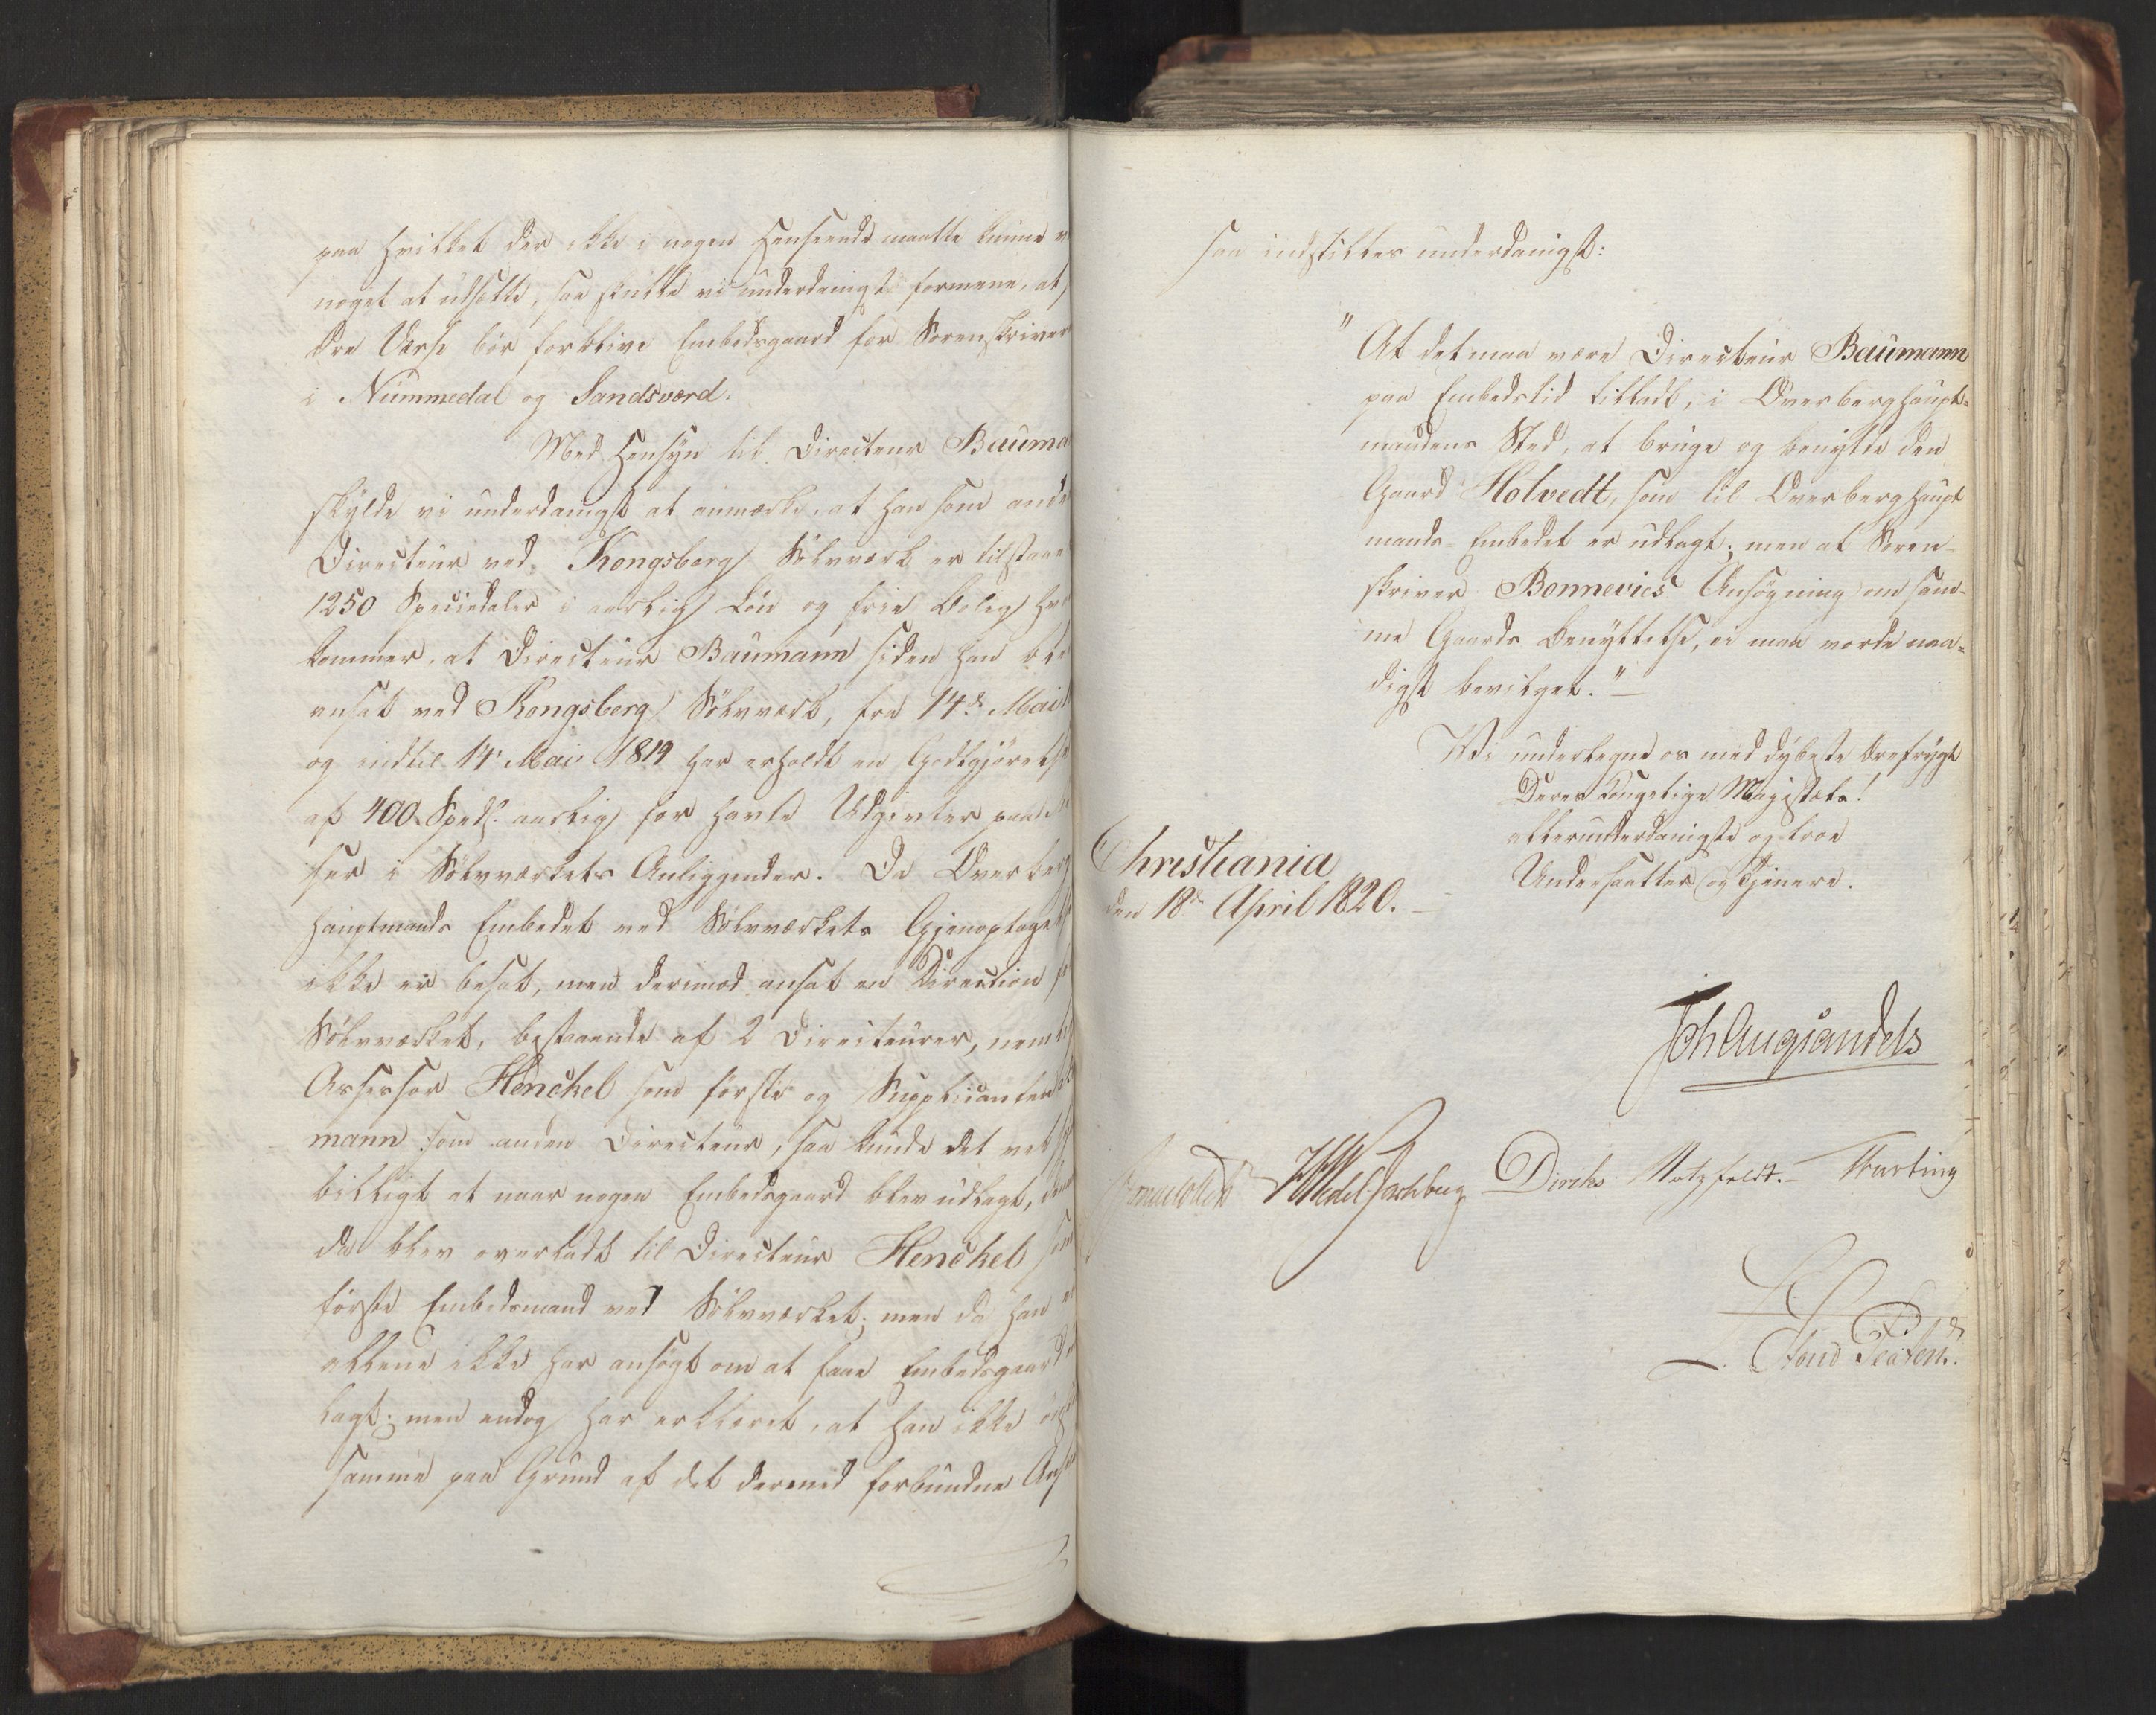 paa hvilket der ikke i nogen Henseende maatte kunne
noget at udsætte, saa skulle vi underdanigst formene, at
Øvre Værp bør forblive Embedsgaard for Sorenskriver
i Nummedal og Sandsværd.
Med Hensyn til Directeur Bauma
skulde vi underdanigst at anmærke, at han som ande
Directeur ved Kongsberg Sølvværk er tilstaae
1250 Speciedaler i aarlig Løn og frie Bolig, hvo
kommer, at Directeur Baumann siden han ble
ansat ved Kongsberg Sølvværk, fra 14de Mai
og indtil 14 Mai 1819 har erholdt en Godtgjørelse
af 400 Spd. aarlig for havte Udgivter paa
ser i Sølvværkets Anliggender. Da Overberg
hauptmands Embedet ved Sølvværkets Gjenoptagel
ikke er besat, men derimod ansat en Direction
Sølvværket, bestaaende af 2 Directeurer, neml
Assessor Henckel som første og Supplicanten
mann som anden Directeur, saa kunde det vel
billigt at naar nogen Embedsgaard blev udlagt,
da blev overladt til Directeur Henckel som
første Embedsmand ved Sølvværket; men da han
allene ikke har ansøgt om at faae Embedsgaard
lagt; men endog har erklæret, at han ikke
samme paa Grund af det dermed forbundne Ans
saa indstilles underdanigst:
"At det maa være Directeur Baumann
paa Embedstid tilladt, i Overberghaupt-
mandens Sted, at bruge og benytte den
Gaard Holvedt, som til Overberghaupt
mands Embedet er udlagt; men at Soren-
skriver Bonnevies Ansøgning om sam-
me Gaards Benyttelse, ei maa vorde naa-
digst bevilget."
Vi undertegne os med dybeste Ærefrygt
Deres Kongelige Majestæts!
allerunderdanigste og troe
Undersaatter og Tjenere.
Christiania
den 18de April 1820.
Joh Aug Sandels
Sommerhielm HWedel Jarlsberg Diriks Motzfeldt. Fasting